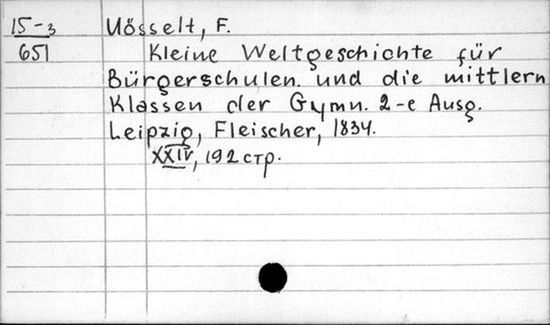 15-3 Uösselt, F.
651 Kleine Weltgeschichte für
Bürgerschulen. und die mittlern
Klassen der Gymn. 2-e Ausg.
Leipzig, Fleischer, 1834.
XXIV, 192 стр.